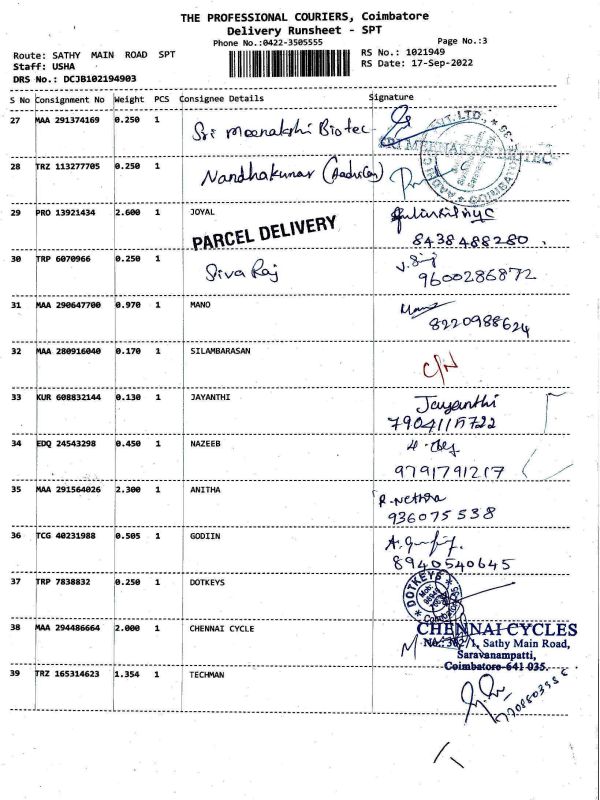 THE PROFESSIONAL COURIERS, Coimbatore
Delivery Runsheet - SPT
Phone No.:0422-3505555
Page No.:3
Route: SATHY MAIN ROAD SPT
RS No.: 1021949
Staff: USHA
RS Date: 17-Sep-2022
DRS No.: DCJB102194903
S No Consignment No Weight PCS Consignee Details Signature
27 MAA 291374169 0.250 1 Sri Meenakshi Biotec
28 TRZ 113277705 0.250 1 Nandhakumar
29 PRO 13921434 2.600 1 JOYAL
PARCEL DELIVERY
8438488280
30 TRP 6070966 0.250 1 Siva Raj
9600286872
31 MAA 290647700 0.970 1 MANO
8220988624
32 MAA 280916040 0.170 1 SILAMBARASAN C/N
33 KUR 608832144 0.130 1 JAYANTHI Jayanthi
34 EDQ 24543298 0.450 1 NAZEEB
9791791217
35 MAA 291564026 2.300 1 ANITHA R. Nethra
936075538
36 TCG 40231988 0.505 1 GODIIN
8940540645
37 TRP 7838832 0.250 1 DOTKEYS DOTKEYS
38 MAA 294486664 2.000 1 CHENNAI CYCLE CHENNAI CYCLES
No.: 302/1, Sathy Main Road,
Saravanampatti,
Coimbatore-641 035.
39 TRZ 165314623 1.354 1 TECHMAN